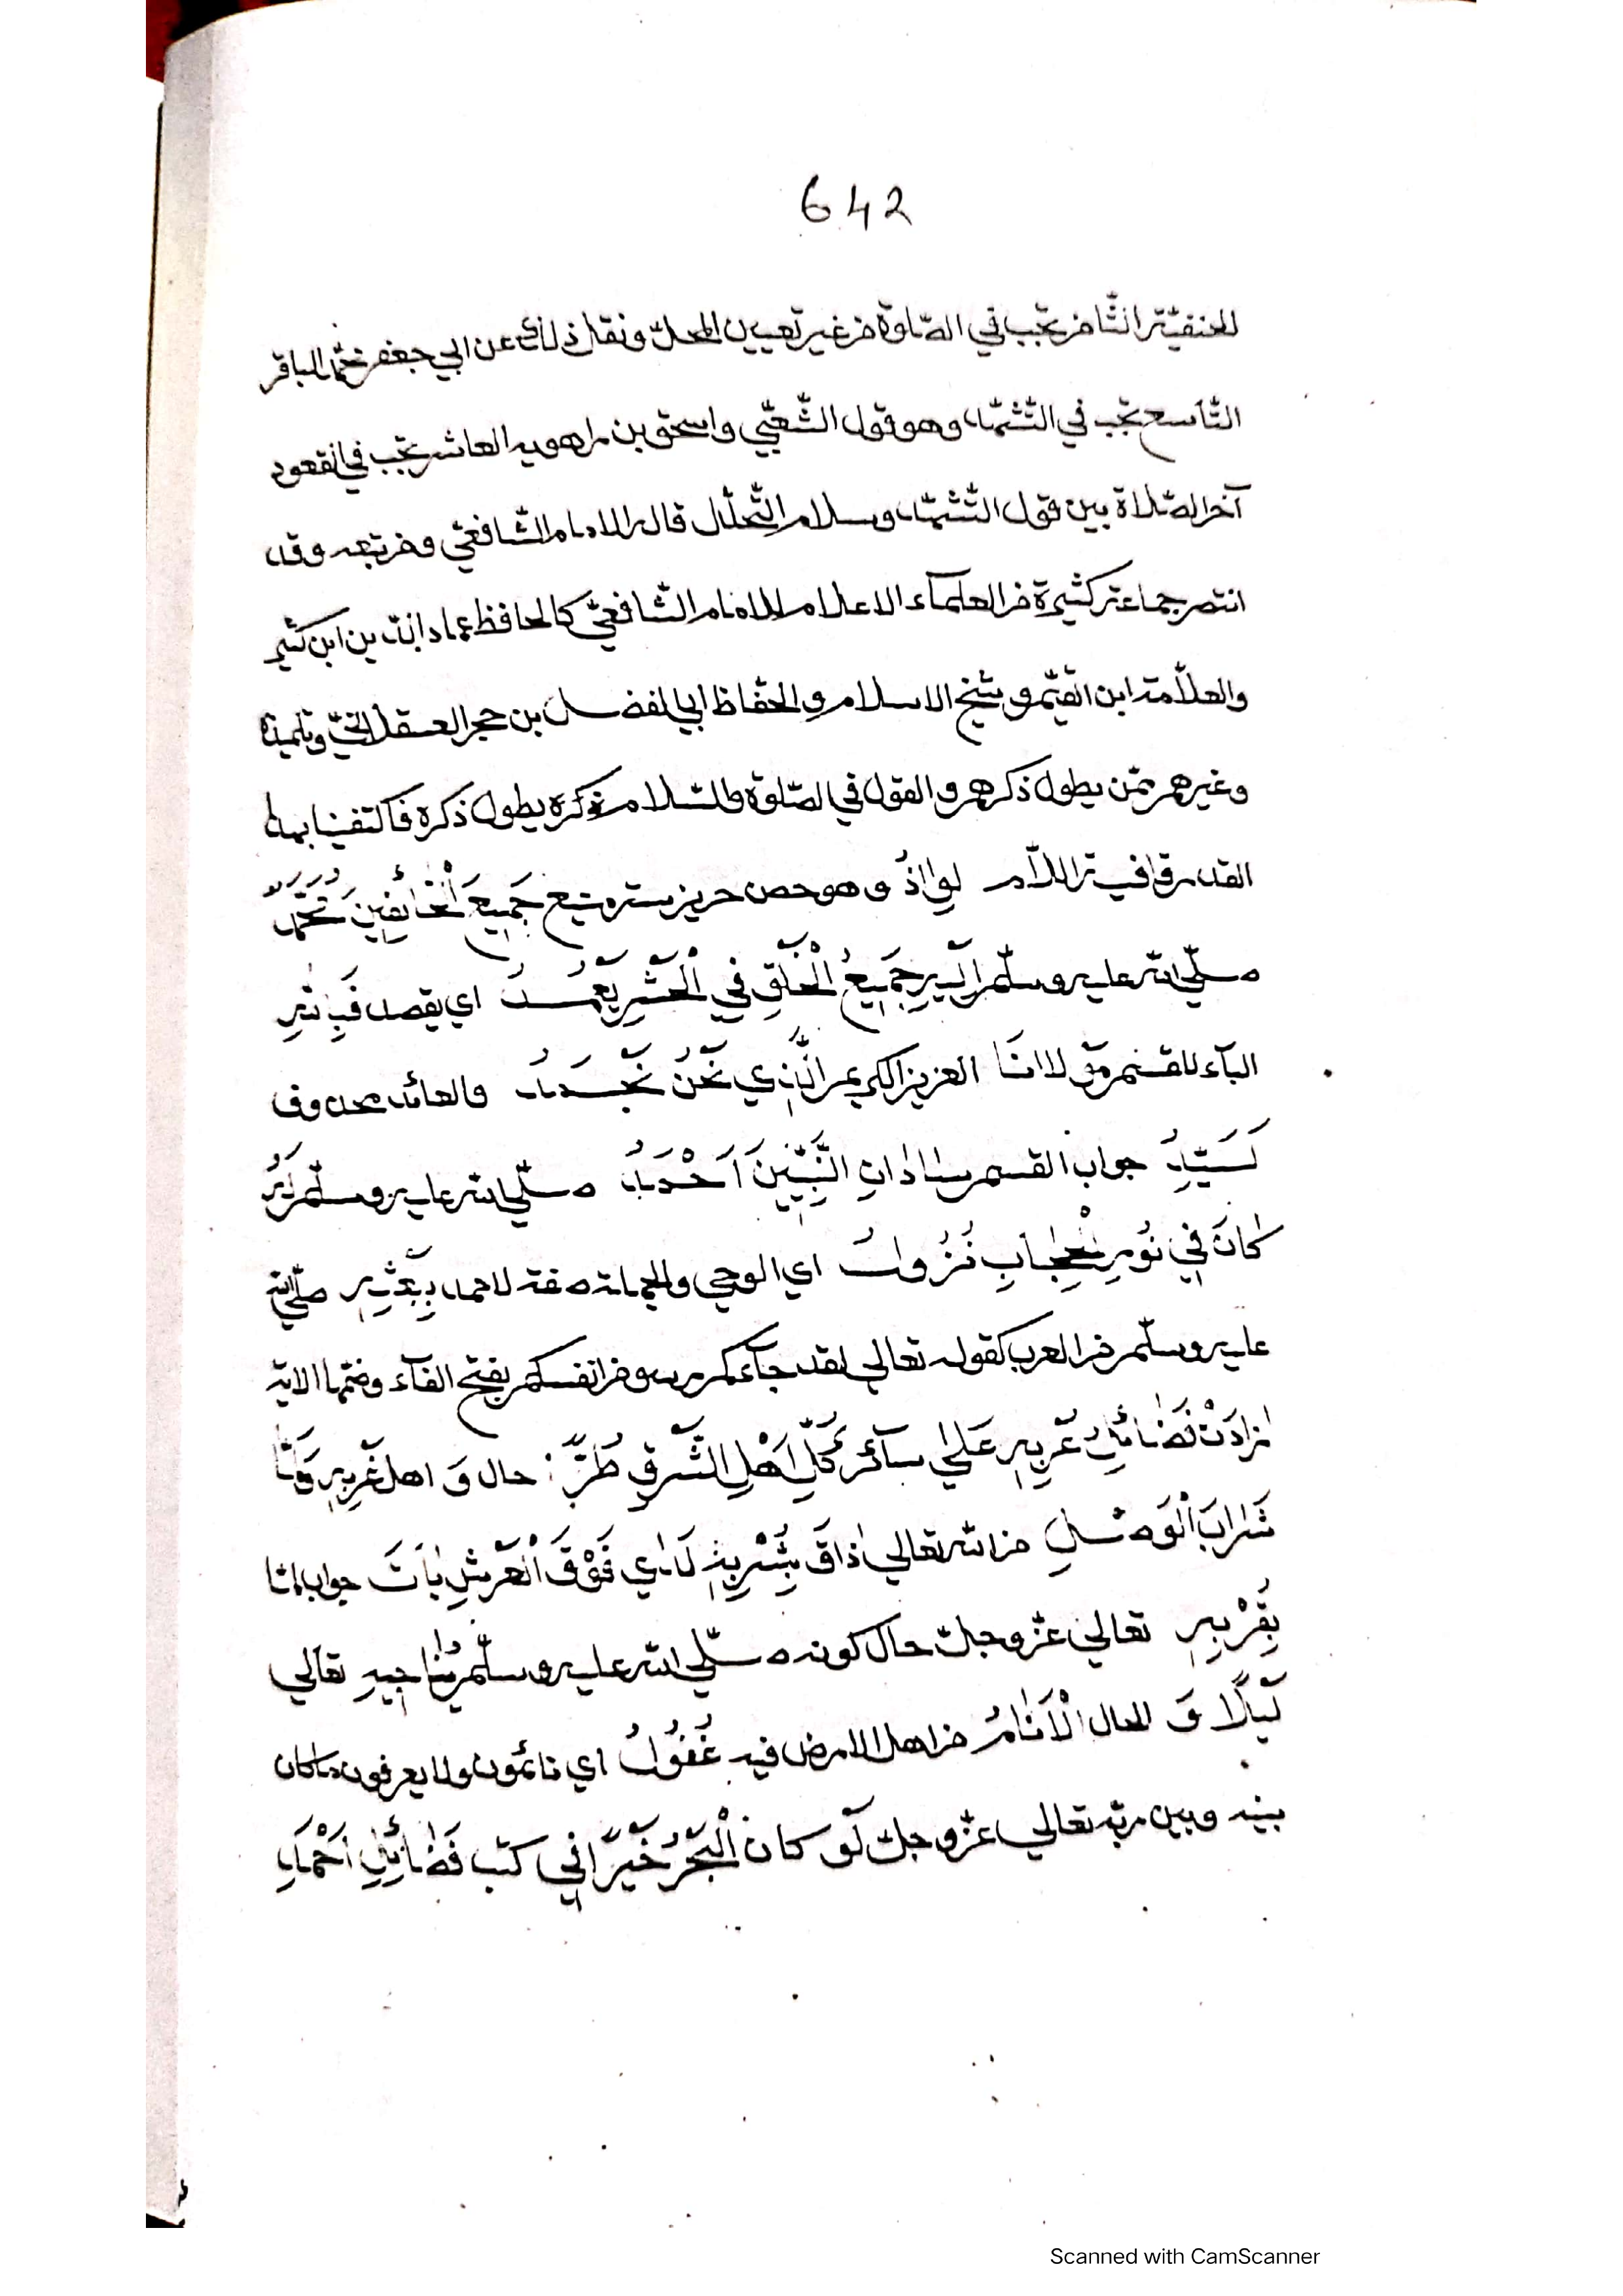 642
الحنفيّة الثّامن تجب في الصّلوة من غير تعيين المحلّ ونقل ذلك عن ابي جعفر محمّد الباقر
التّاسع تجب في التّشهّد وهو قول الشّعبّي واسحق بن راهويه العاشر تجب في القعود
آخر الصّلاة بين قول التّشهّد وسلام التّحلّل قاله الامام الشّافعيّ ومن تبعه وقد
انتصر جماعة كثيرة من العلمآء الاعلام للامام الشّافعيّ كالحافظ عماد الدّين ابن كثير
والعلاّمة ابن القيّم و شيخ الاسلام و الحفّاظ ابي الفضل بن حجر العسقلانيّ وتلميذه
وغيرهم ممّن يطول ذكرهم و القول في الصّلوة والسّلام يطول ذكره فاكتفينا بهذا
القدر قافية اللاّم لِوَاذُ وهو حصن حريز ستر منيع جَمِيعَ الْخَائِفِينَ مُحَمَّدُ
صلّي الله عليه وسلّم إِلَيهِ جَمِيعُ الْخَلْقِ فِي الْحَشْرِ يَعْمِدُ اي يقصد فَبِاللهِ
البآء للقسم مَوْلانَا العزيز الكريم الَّذِي نَحْنُ نَحْمَدُ والعائد محذوف
لَسَيِّدُ جواب القسم سادَاتِ النَّبِيِّينَ اَحْمَدُ صلّي الله عليه وسلّم لَهُ
كَانَ فِي نُورِ الْحِجَابِ نُزُولُ اي الوحي والجملة صفة لاحمد بِبَعْثِهِ صلّي الله
عليه وسلّم من العرب كقوله تعالي لقد جآءكم رسول من انفسكم بفتح الفآء وضمّها الاية
زادَتْ فَضَائِلُ عُرْبِهِ عَلَي سآئر كُلِّ اَهْلِ الشَّرْقِ طُرًّا حال وَ اهل غَرْبِهِ وَلَمَّا
شَرَابَ الْوَصْلِ من الله تعالي ذَاقَ بِشُرْبِهِ لَدَي فَوْقَ الْعَرْشِ بَاتَ جواب لمّا
بِقُرْبِهِ تعالي عزّ وجلّ حال كونه صلّي الله عليه وسلّم يُناجِيهِ تعالي
لَيْلًا وَ الحال الْاَنَامُ من اهل الارض فيه غُفُولُ اي نائمون ولا يعرفون ما كان
بينه وبين ربّه تعالي عزّ وجلّ لَو كان الْبَحْرُ حِبْرًا فِي كتب فَضَائِلِ اَحْمَدِ
Scanned with CamScanner